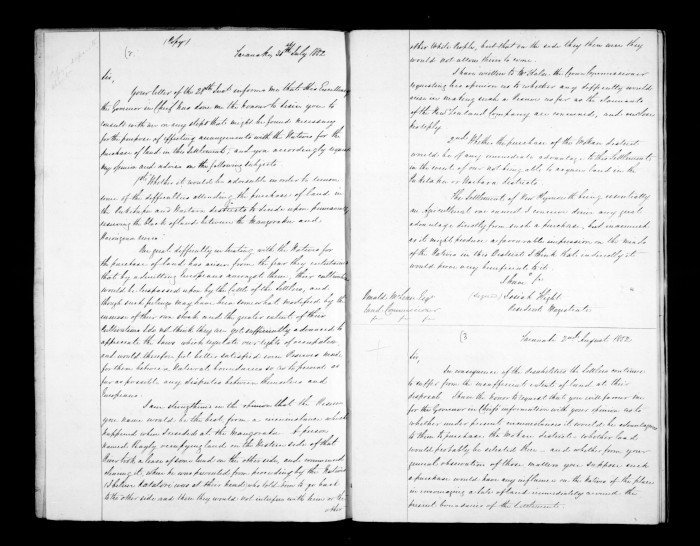 (Copy)
(2
Taranaki, 30th July 1852
Sir,
Your letter of the 28th Inst informs me that His Excellency
the Governor in Chief has done me the honour to desire you to
consult with me on any steps that might be found necessary
for the purpose of effecting arrangements with the Natives for the
purchase of land in this Settlement; and you accordingly request
my opinion and advice on the following subjects.
1st Whether it would be advisable in order to remove
some of the difficulties attending the purchase of land in
the and districts to decide upon permanently
reserving the block of land between the Mangoraka and
river
One great difficulty in treating with the Natives for
the purchase of land has arisen from the fear they entertained
that by admitting Europeans amongst them, their cultivations
would be trespassed upon by the Cattle of the Settlers, and
though such feelings may have been somewhat modified by the
increase of their own stock and the greater extent of their
cultivations I do not think they are yet sufficiently advanced to
appreciate the laws which regulate our rights of occupation,
and would therefore feel better satisfied were Reserves made
for them between Natural boundaries so as to prevent as
far as possible any disputes between themselves and
Europeans.
I am strengthened in the opinion that the Reserve
you name would be the best from a circumstance which
happened when I resided at the Mangoraka. A person
named Bayly occupying land on the Western side of that
River took a lease of some land on the other side, and commenced
clearing it, when he was prevented from proceeding by the Natives
Katatore was at their head who told him to go back
to the other side and then they would not interfere with him or the
other
other White People, but that on the side they then were they
would not allow them to come.
I have written to Mr Halse, the Crown Commissioner
requesting his opinion as to whether any difficulty would
arise in making such a Reserve as far as the claimants
of the New Zealand Company are concerned, and enclose
his reply.
2nd Whether the purchase of the Mokau district
would be of any immediate advantage to this Settlement
in the event of our not being able to acquire land in the
or districts
The Settlement of New Plymouth being essentially
an Agricultural one cannot I conceive derive any great
advantage directly from such a purchase, but inasmuch
as it might produce a favorable impression on the minds
of the Natives in this District I think that indirectly it
would prove very beneficial to it.
I have &c
(Signed) Josiah Flight
Resident Magistrate
Donald McLean Esqr
Land Commissioner
(3
Taranaki 2nd August 1852
Sir,
In consequence of the disabilities the Settlers continue
to suffer from the insufficient extent of land at their
disposal I have the honor to request that you will favour me
for the Governor in Chief's information with your opinion as to
whether under present circumstances it would be advantageous
to them to purchase the Mokau district whether land
would probably be selected there and how from your
general observation of these matters you suppose such
a purchase would have any influence on the Natives of the place
in encouraging a sale of land immediately around the
present boundaries of the Settlement.